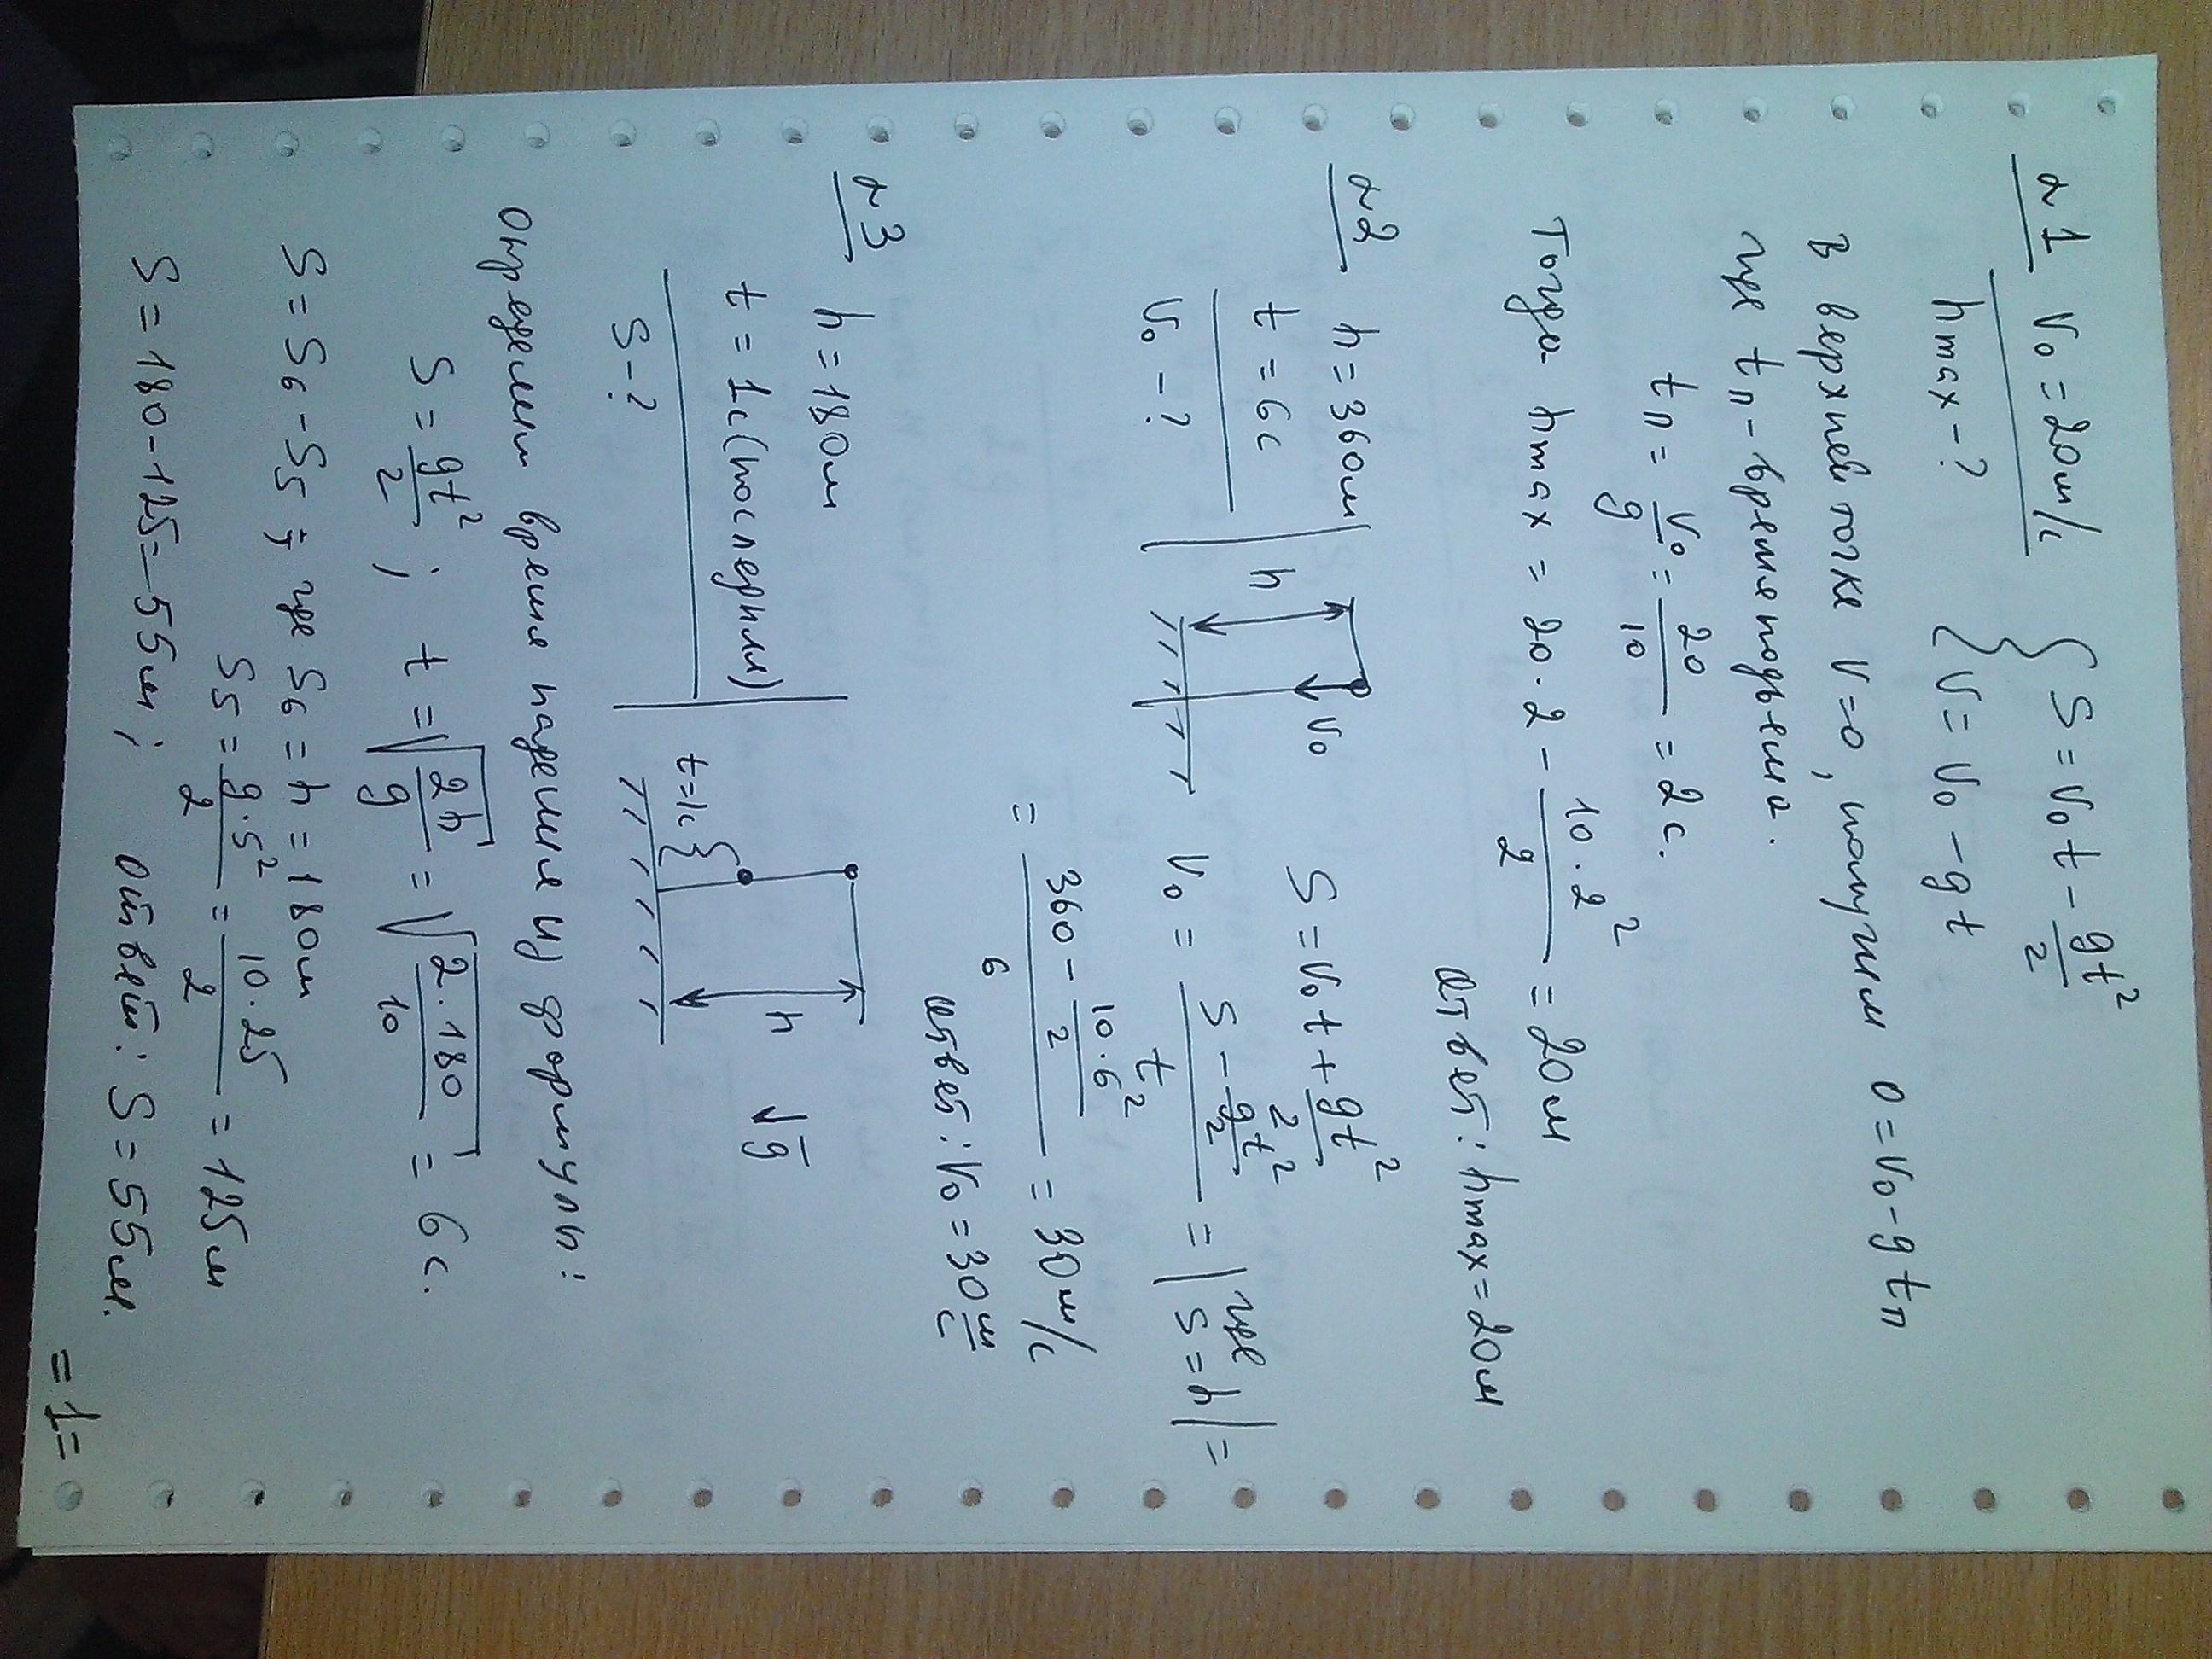 №1 V₀ = 20м/с
hmax - ?
{ S = V₀t - gt²/2
{ V = V₀ - gt
В верхней точке V=0, получим 0 = V₀ - gtп
где tп - время подъема.
tп = V₀/g = 20/10 = 2с.
Тогда hmax = 20·2 - 10·2²/2 = 20м
Ответ: hmax = 20м
№2 h = 360м
t = 6с
V₀ - ?
h
V₀
S = V₀t + gt²/2
V₀ = (S - gt²/2)/t = | где S = h | =
= (360 - 10·6²/2)/6 = 30м/с
Ответ: V₀ = 30 м/с
№3 h = 180м
t = 1с (последняя)
S - ?
t=1с
h
↓g̅
Определим время падения из формулы:
S = gt²/2 ; t = √(2h/g) = √(2·180/10) = 6с.
S = S₆ - S₅ ; где S₆ = h = 180м
S₅ = g·5²/2 = 10·25/2 = 125м
S = 180 - 125 = 55м ; Ответ: S = 55м.
=1=